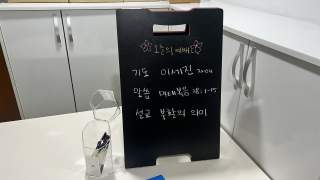 오늘의 예배
기도 이세진 자매
말씀 마태복음 28:1-15
설교 부활의 의미